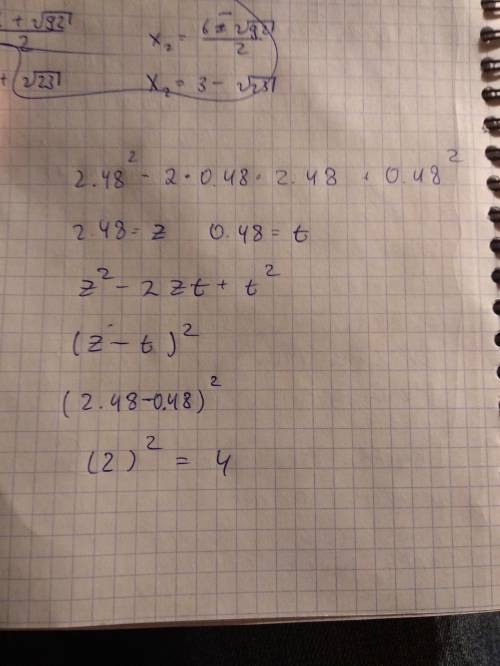 + √92 / 2 x₂ = 6 ± √92 / 2
+ √23 x₂ = 3 - √23
2.48² - 2 · 0.48 · 2.48 + 0.48²
2.48 = z 0.48 = t
z² - 2zt + t²
(z - t)²
(2.48 - 0.48)²
(2)² = 4